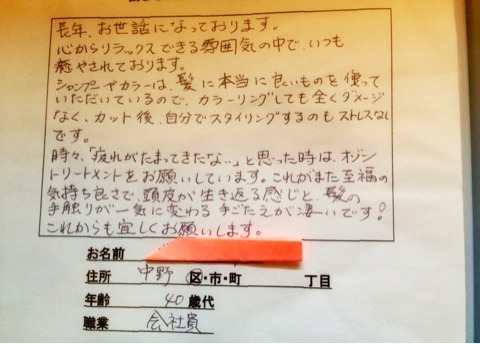 長年、お世話になっております。
心からリラックスできる雰囲気の中で、いつも
癒やされております。
シャンプーやカラーは、髪に本当に良いものを使って
いただいているので、カラーリングしても全くダメージ
なく、カット後、自分でスタイリングするのもストレスなし
です。
時々、「疲れがたまってきたな…」と思った時は、オゾン
トリートメントをお願いしています。これがまた至福の
気持ち良さで、頭皮が生き返る感じと、髪の
手触りが一気に変わる手ごたえが凄いです!
これからも宜しくお願いします。
お名前
住所 中野 区・市・町 丁目
年齢 40 歳代
職業 会社員